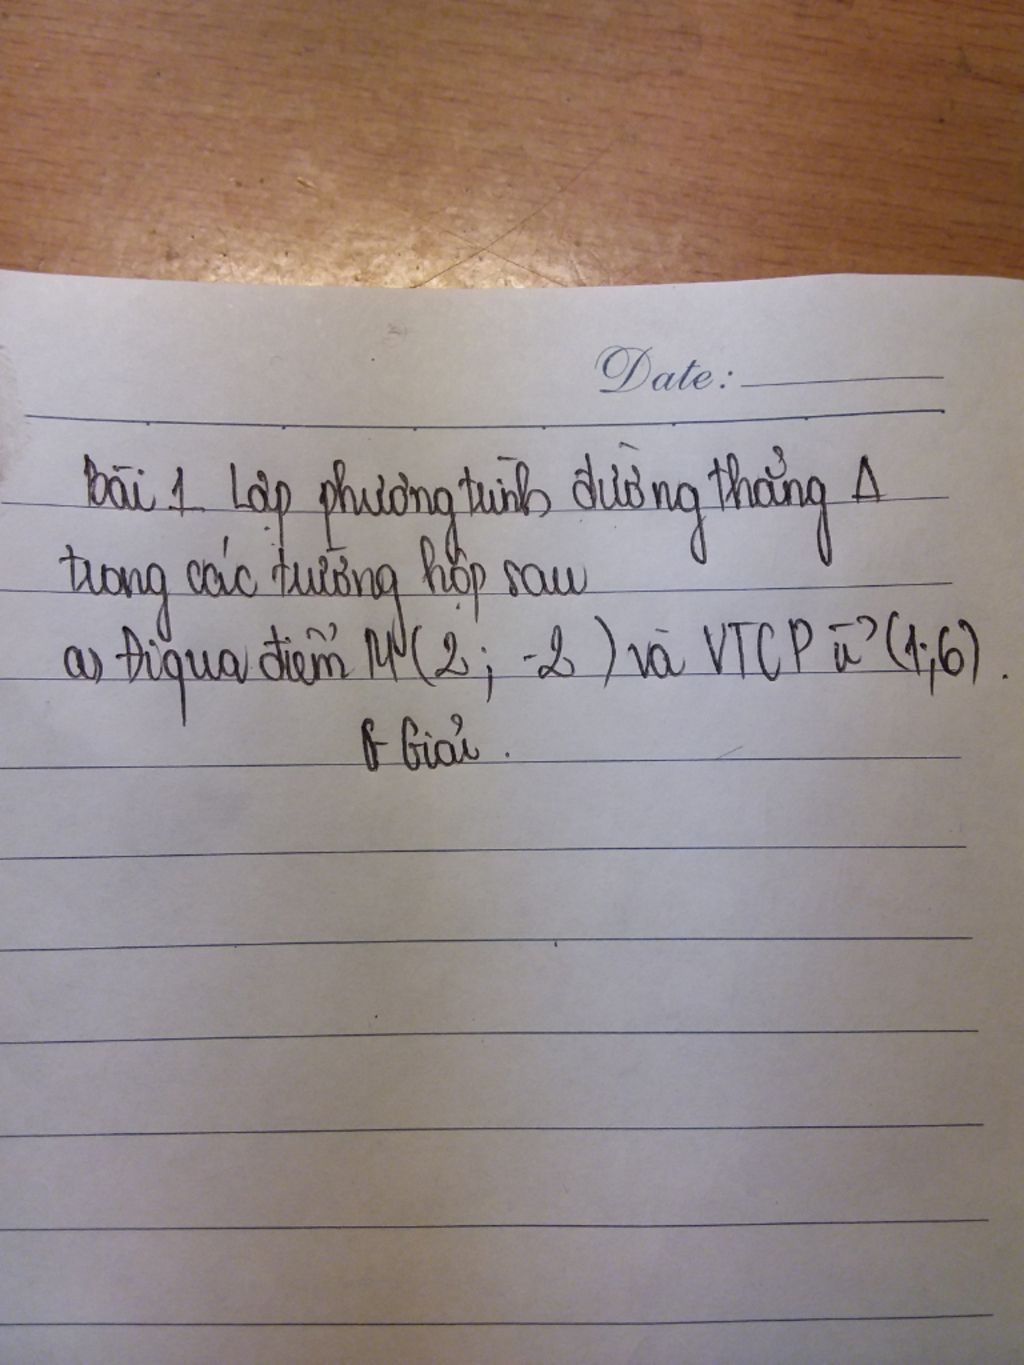 Date:
Bài 1 Lập phương trình đường thẳng Δ
trong các trường hợp sau
a) Đi qua điểm M (2 ; -2 ) và VTCP u→ (1;6) .
Giải .